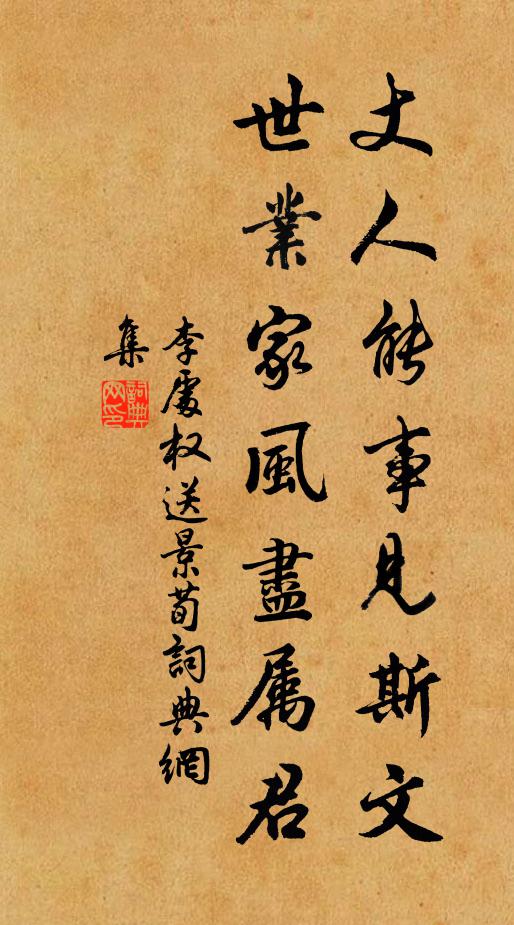 丈人能事見斯文
世業家風盡属君
李處权送景荀詞典網
集
詞典網印